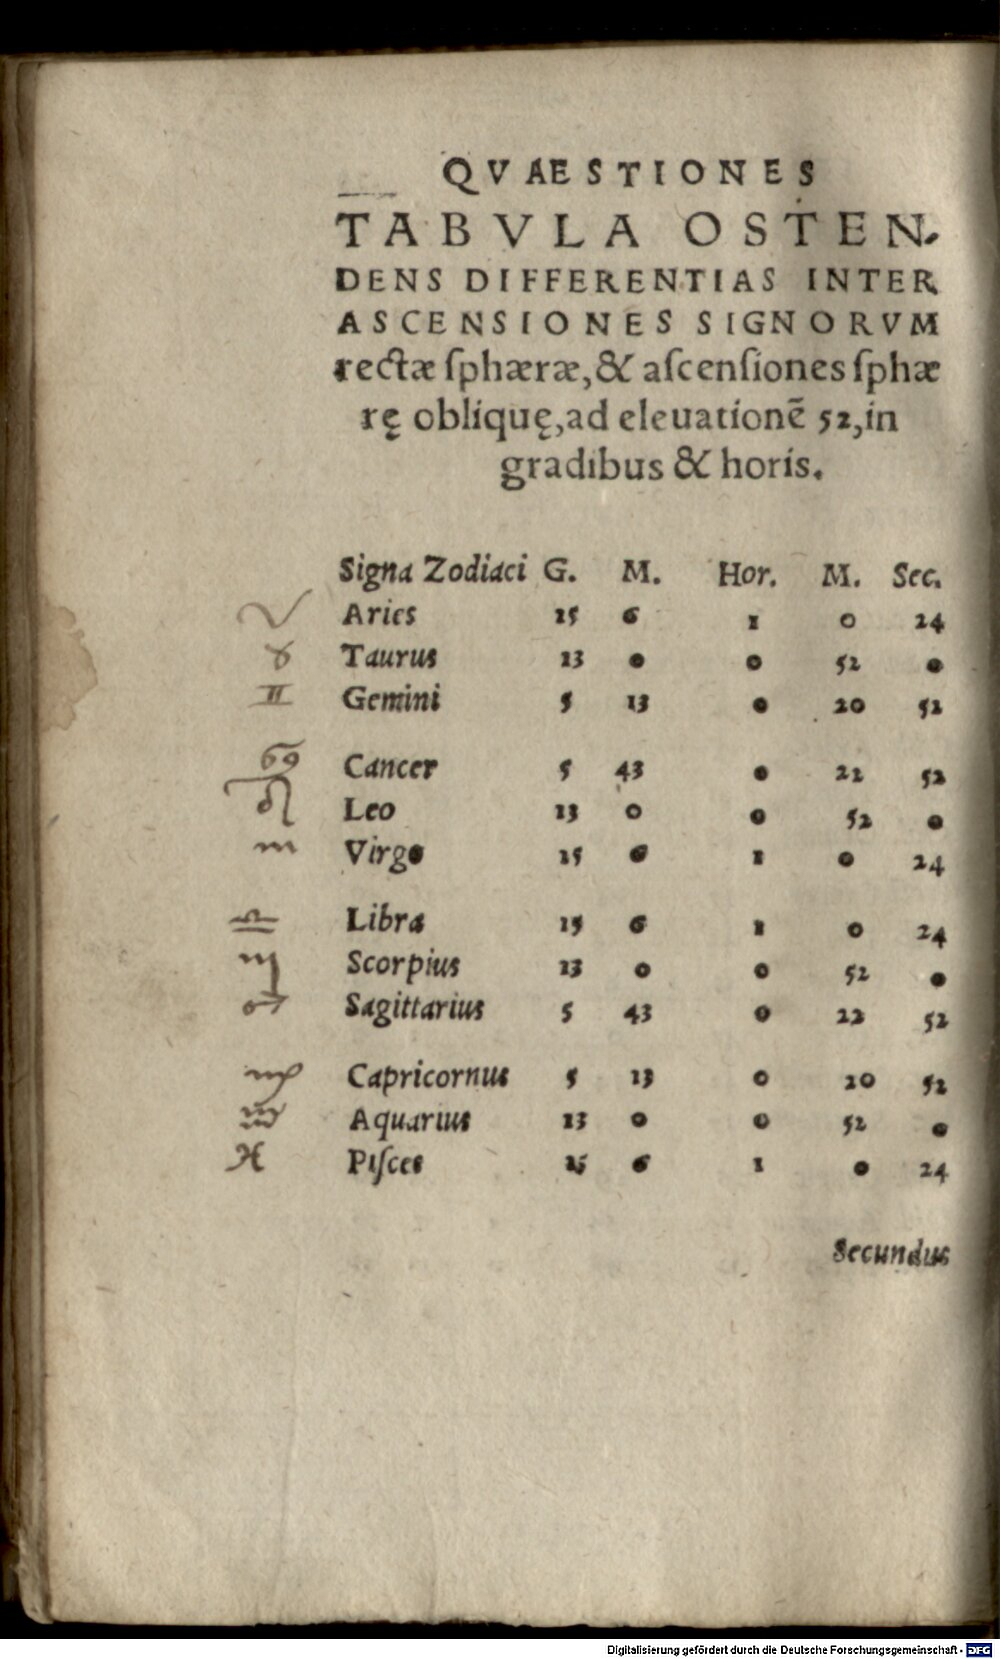 QVAESTIONES
TABVLA OSTEN-
DENS DIFFERENTIAS INTER
ASCENSIONES SIGNORVM
rectæ ſphæræ, & aſcenſiones ſphæ
rę obliquę, ad eleuationē 52, in
gradibus & horis.
Signa Zodiaci G. M. Hor. M. Sec.
♈ Aries 15 6 1 0 24
♉ Taurus 13 0 0 52 0
♊ Gemini 5 13 0 20 52
♋ Cancer 5 43 0 22 52
♌ Leo 13 0 0 52 0
♍ Virgo 15 6 1 0 24
♎ Libra 15 6 1 0 24
♏ Scorpius 13 0 0 52 0
♐ Sagittarius 5 43 0 22 52
♑ Capricornus 5 13 0 20 52
♒ Aquarius 13 0 0 52 0
♓ Piſces 15 6 1 0 24
Secundus
Digitalisierung gefördert durch die Deutsche Forschungsgemeinschaft - DFG